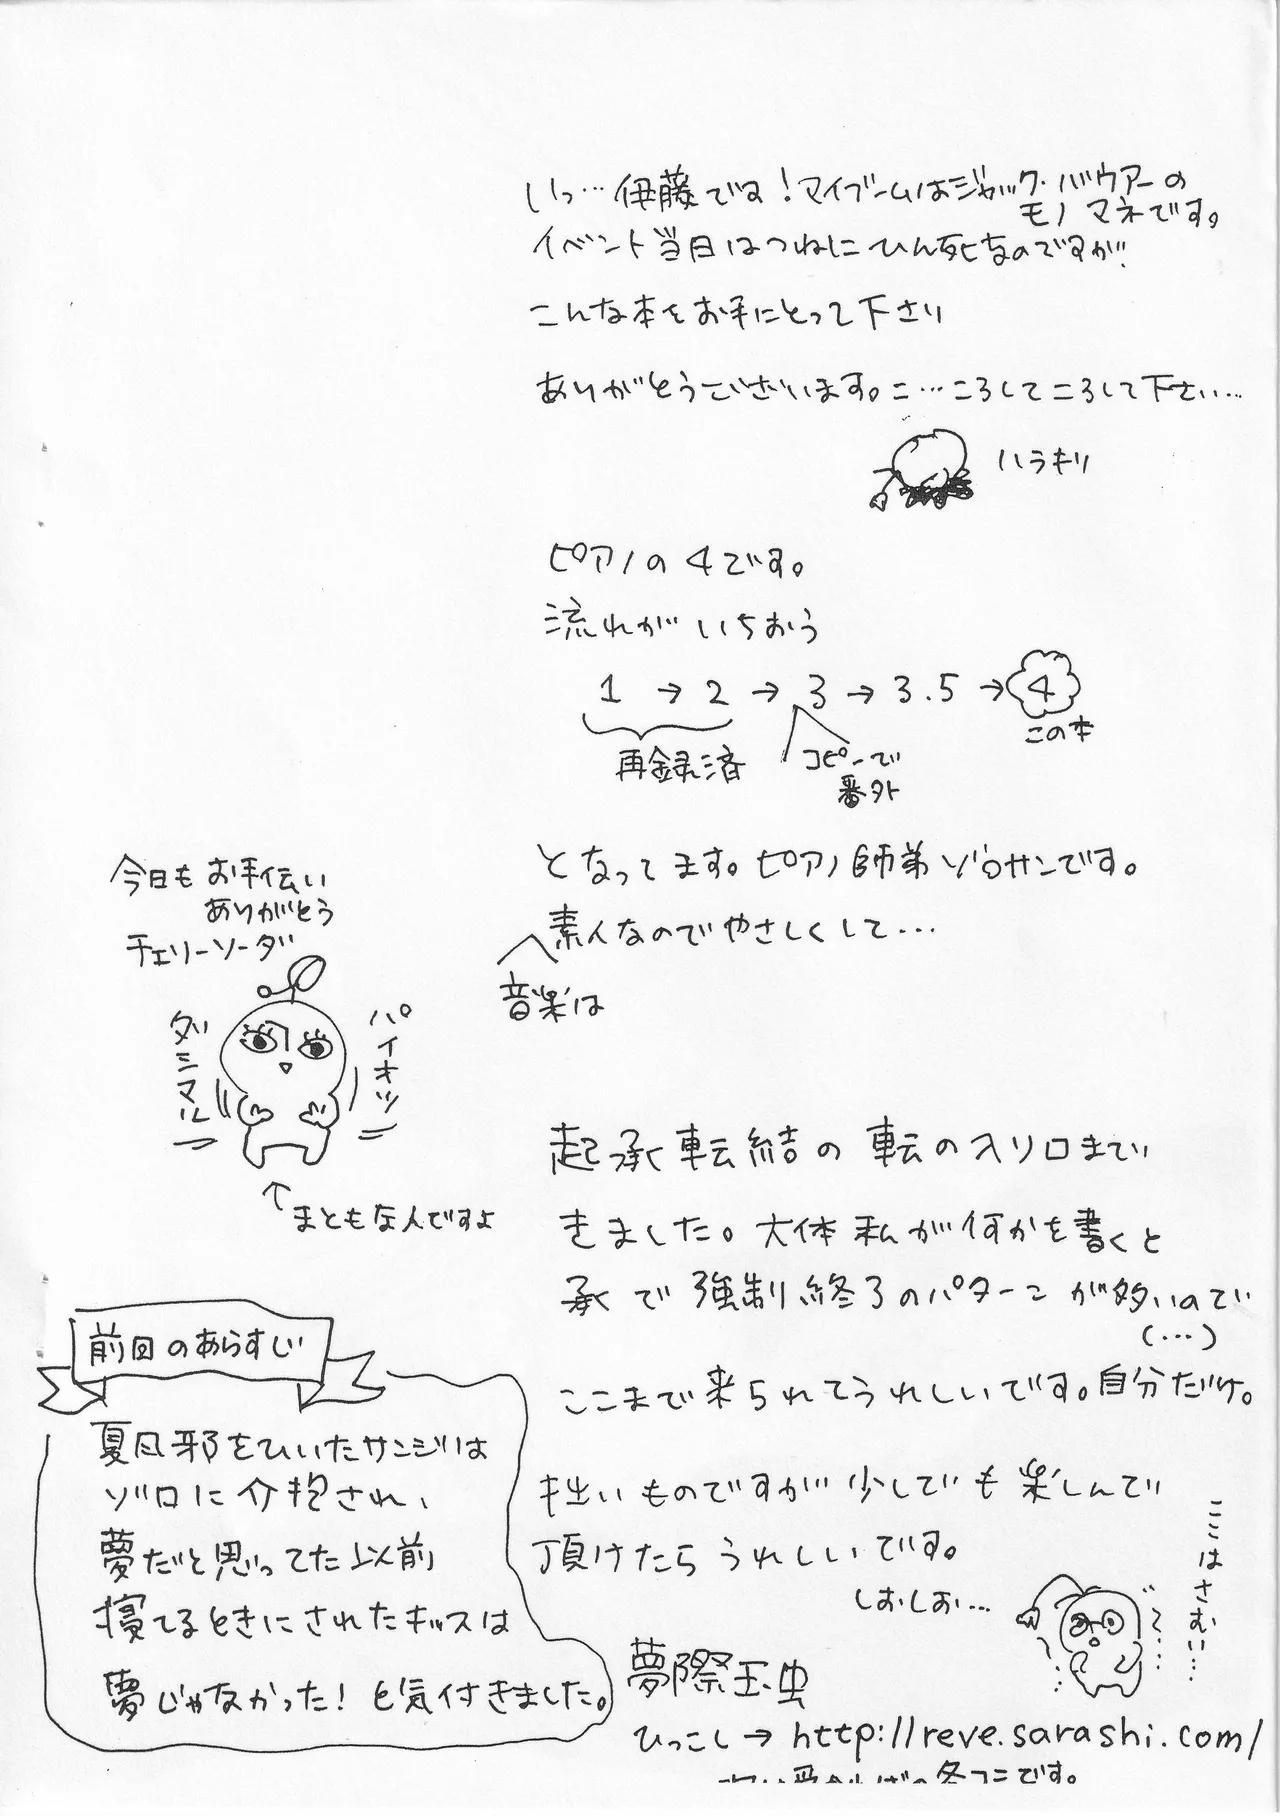 いっ…伊藤です！マイブームはジャック・バウアーの
モノマネです。
イベント当日はつねにひん死なのですが
こんな本をお手にとって下さり
ありがとうございます。こ…ころしてころして下さい…
ハラキリ
ピアノの4です。
流れがいちおう
1→2→3→3.5→4
再録済
コピーで
番外
この本
となってます。ピアノ師弟ゾロサンです。
素人なのでやさしくして…
音楽は
今日もお手伝い
ありがとう
チェリーソーダ
ダミマル
パイオツ
まともな人ですよ
起承転結の転の入り口まで
きました。大体私が何かを書くと
承で強制終了のパターンが多いので
(…)
ここまで来られてうれしいです。自分だけ。
拙いものですが少しでも楽しんで
頂けたらうれしいです。
しおしお…
ここはさむい…
前回のあらすじ
夏風邪をひいたサンジは
ゾロに介抱され、
夢だと思ってた以前
寝てるときにされたキッスは
夢じゃなかった！と気付きました。
夢際玉虫
ひっこし→http://reve.sarashi.com/